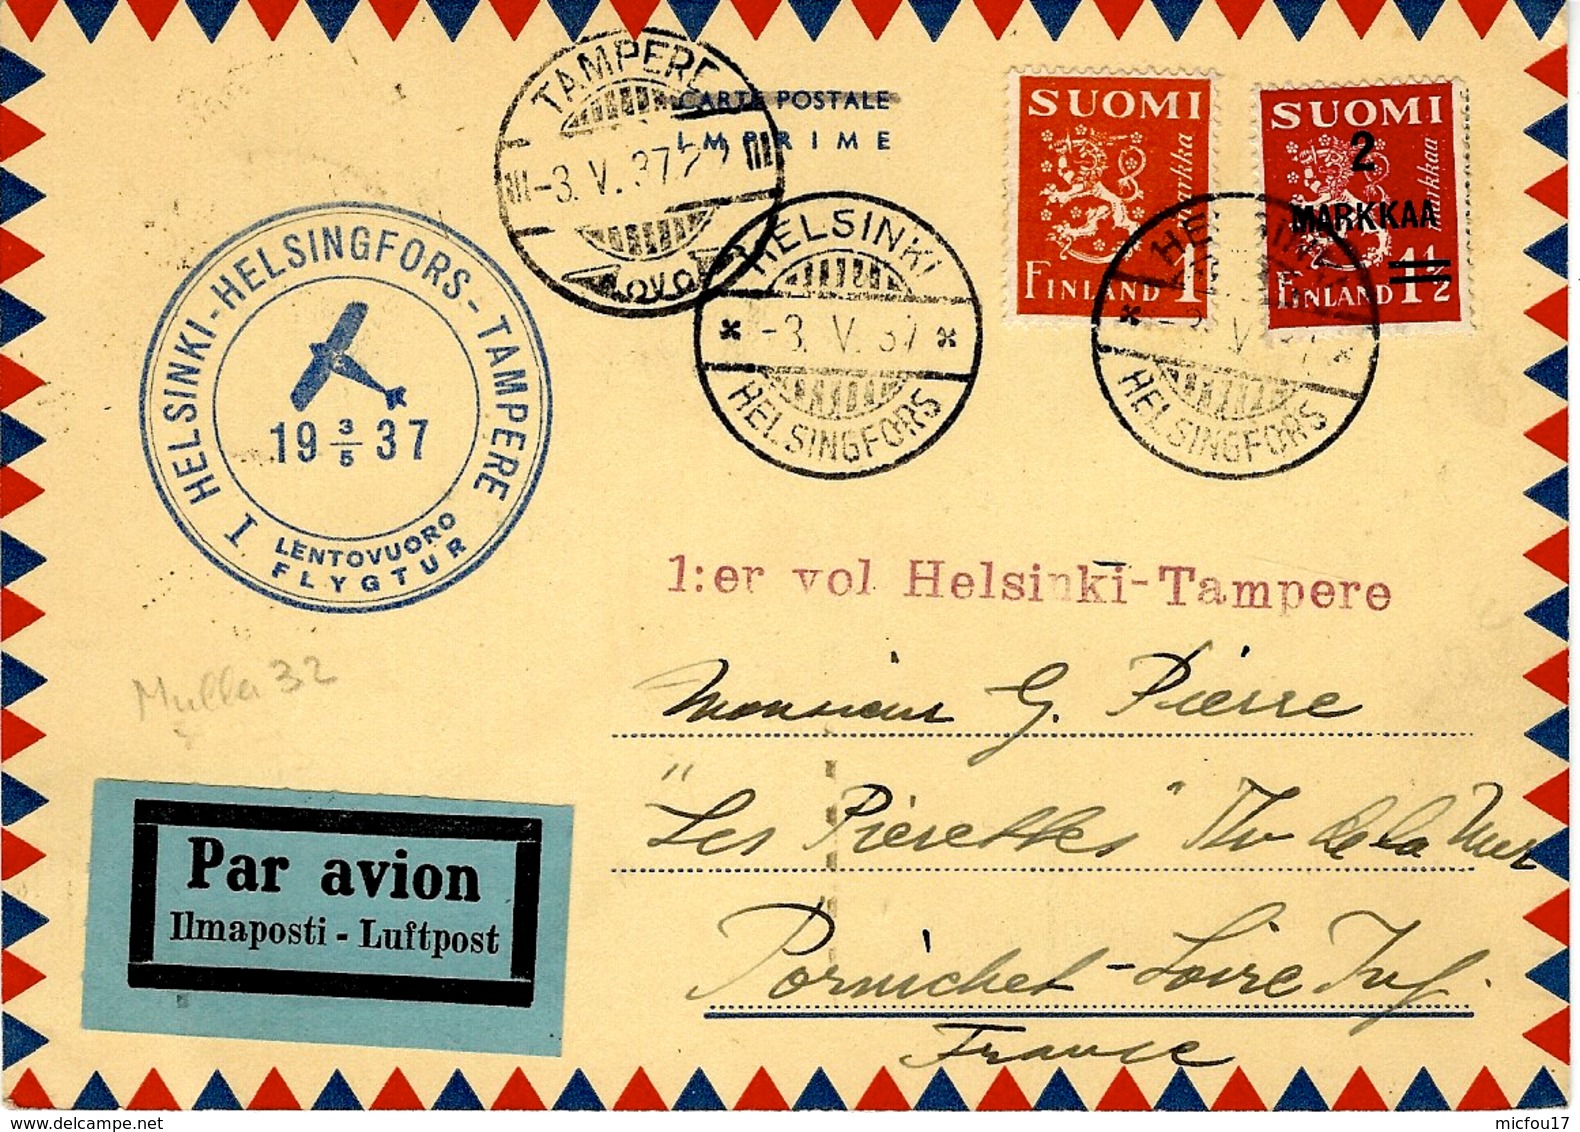 TAMPERE
-3.V.37
CARTE POSTALE
IMPRIME
SUOMI
markka
FINLAND 1
SUOMI
2
MARKKAA
markkaa
FINLAND 1½
HELSINKI
-3.V.37
HELSINGFORS
HELSINKI
-3.V.37
HELSINGFORS
HELSINKI-HELSINGFORS-TAMPERE
19 3/5 37
I LENTOVUORO
FLYGTUR
1:er vol Helsinki-Tampere
Muller 32
Monsieur G. Pierre
"Les Pierettes" Av de la Mer
Pornichet - Loire Inf.
France
Par avion
Ilmaposti - Luftpost
micfou17